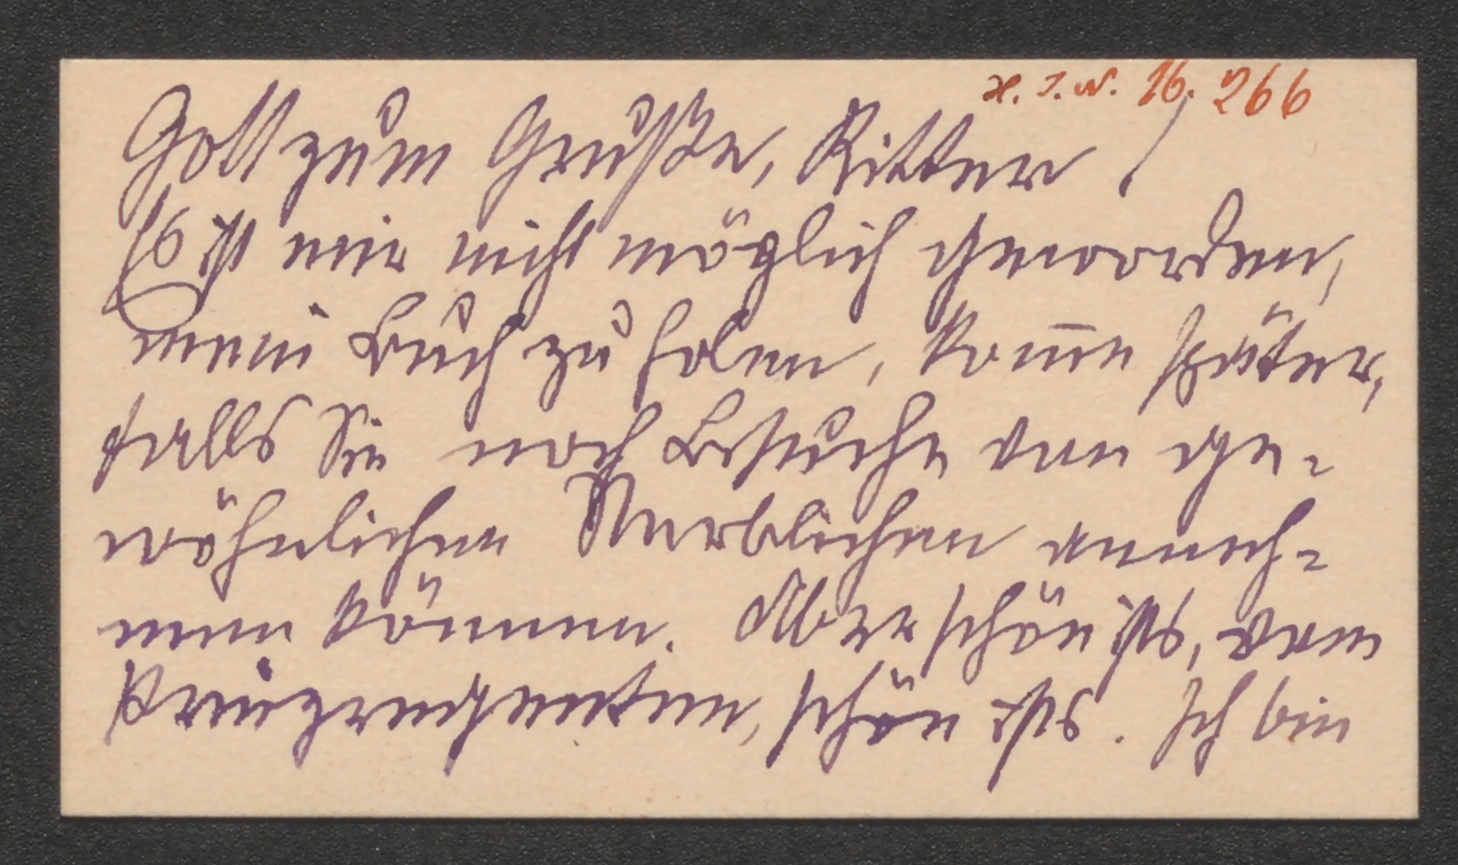 H. I. N. 16. 266
Gott zum Gruße, Ritter!
Es ist mir nicht möglich geworden,
mein Buch zu holen, kom̅e später,
falls Sie noch Besuche von ge-
wöhnlichen Sterblichen anneh-
men können. Aber schön ists, vom
Prinzregenten, schön ists. Ich bin